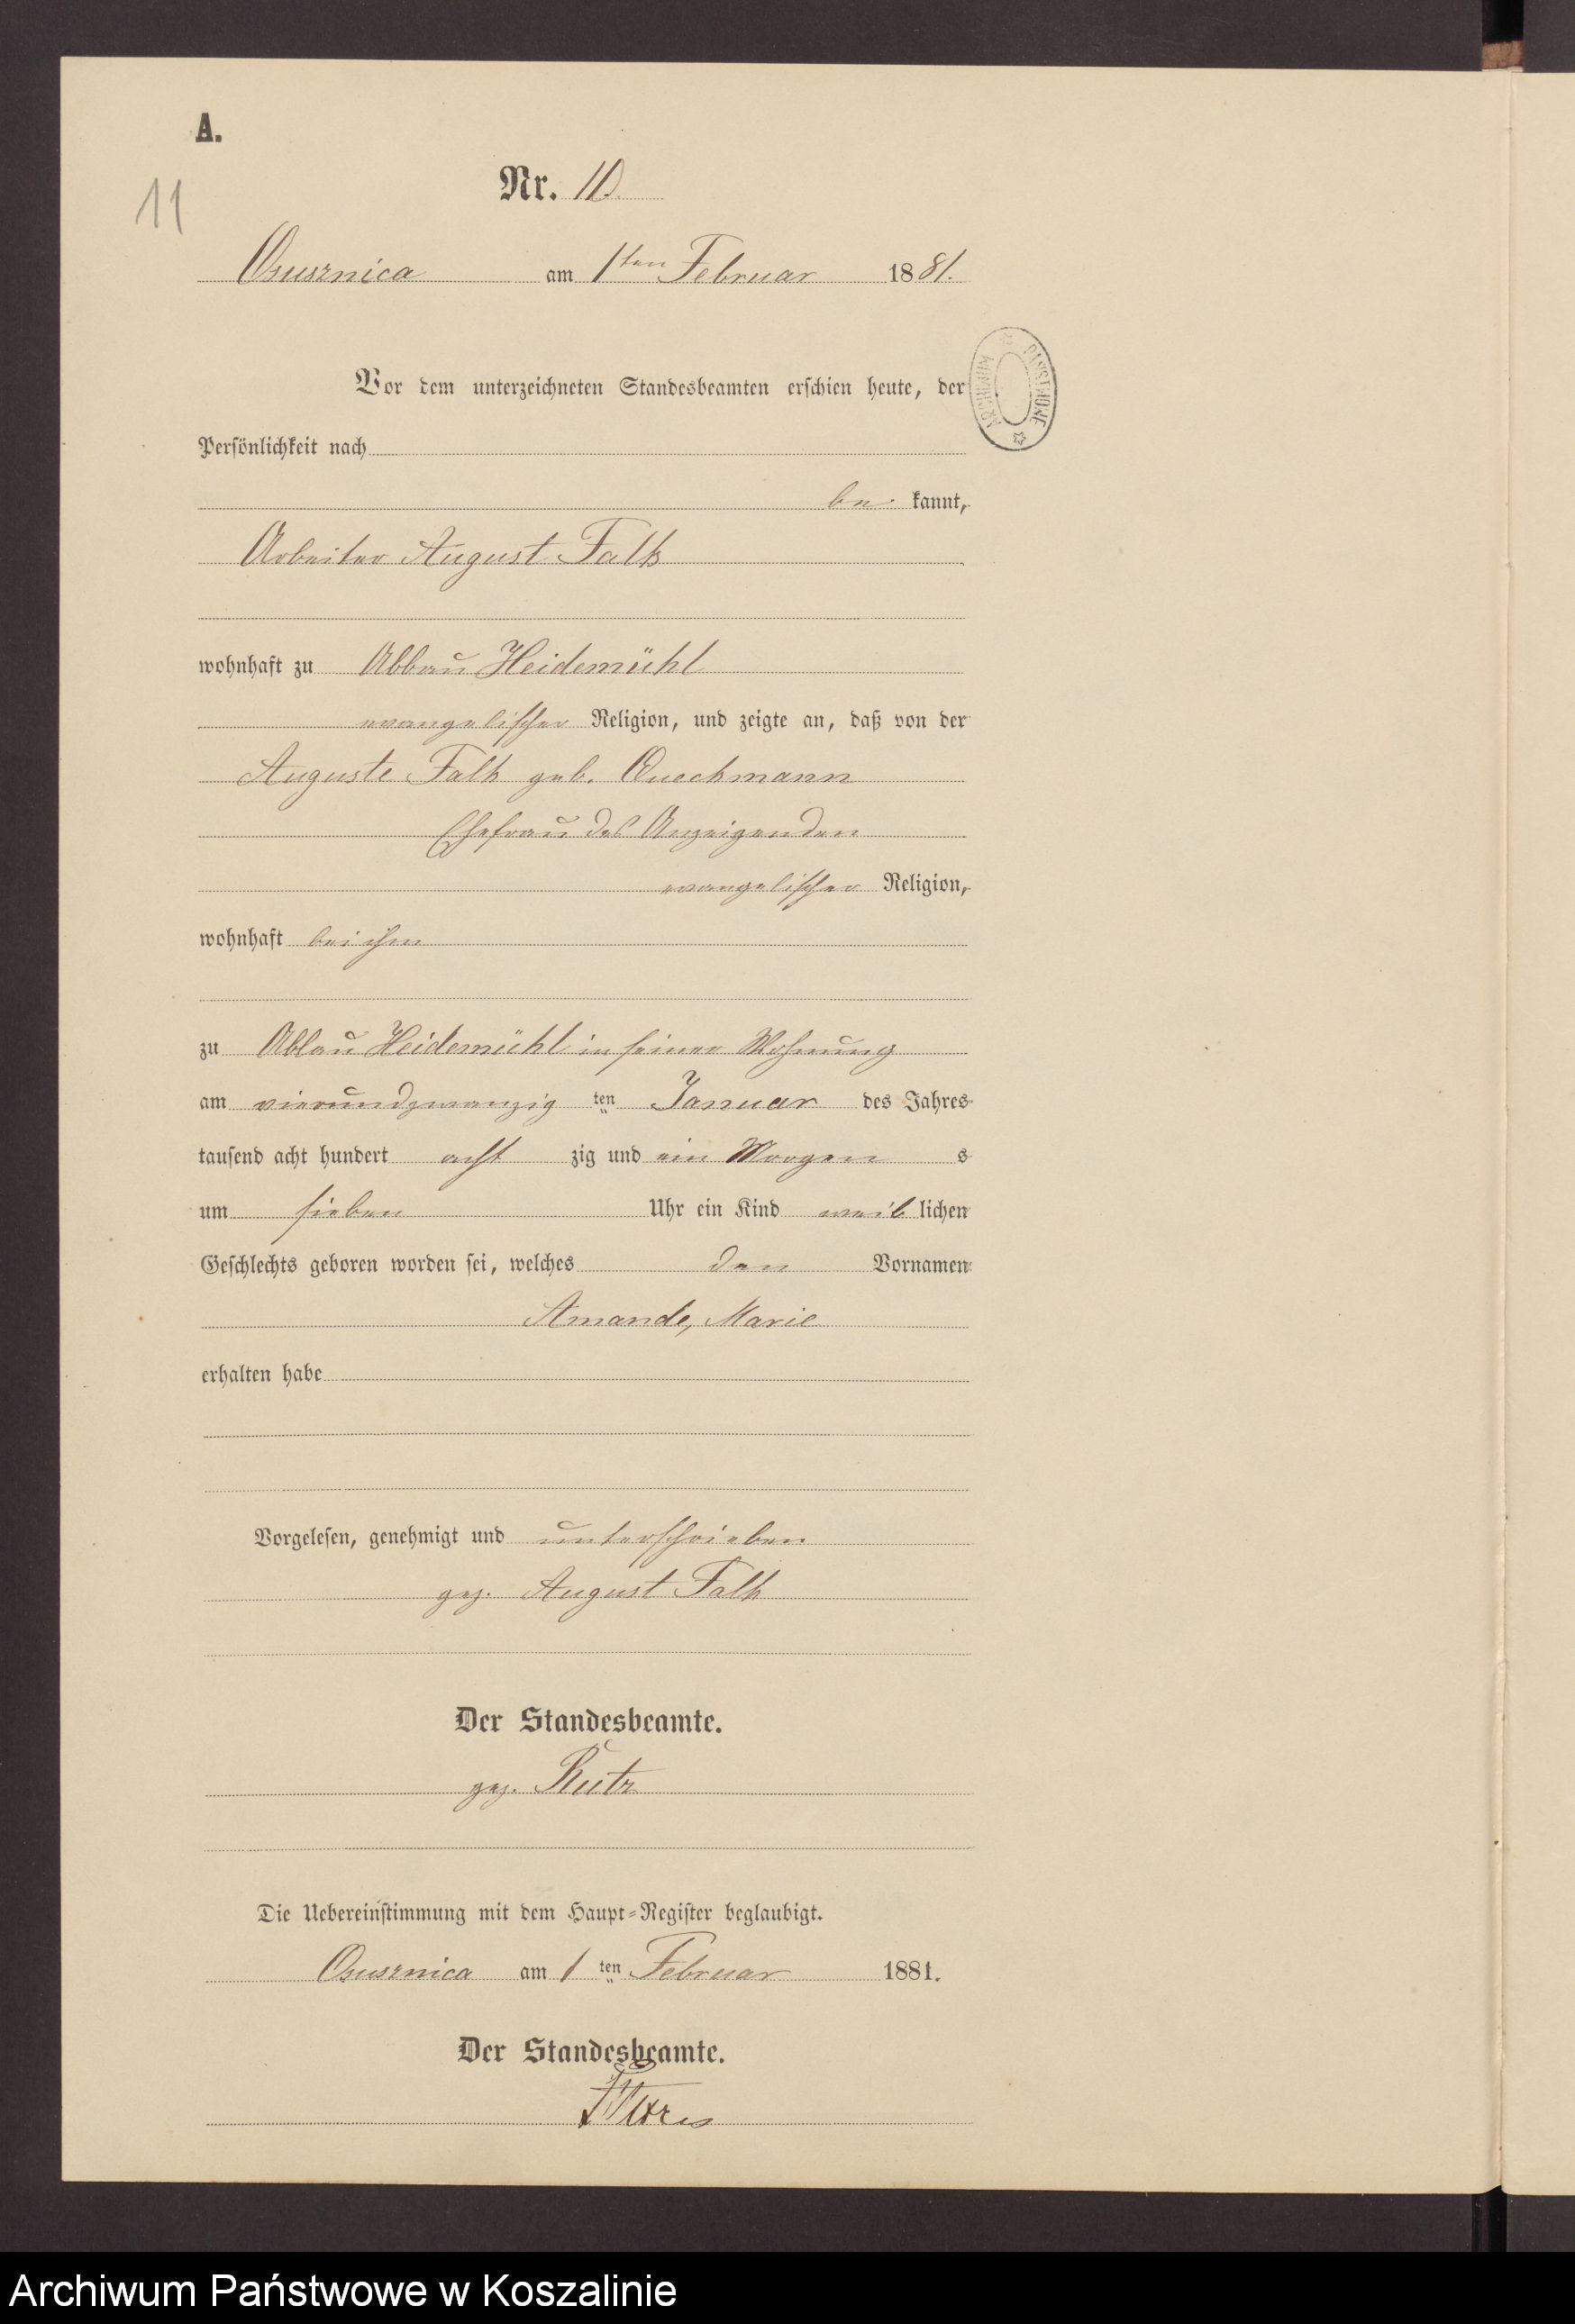 A.
11
Nr. 10.
Osusznica am 1ten Februar 1881.
Vor dem unterzeichneten Standesbeamten erschien heute, der
Persönlichkeit nach
be kannt,
Arbeiter August Falk
wohnhaft zu Abbau Heidemühl
evangelischer Religion, und zeigte an, daß von der
Auguste Falk geb. Quechmann
Ehefrau des Anzeigenden
evangelischer Religion,
wohnhaft bei ihm
zu Abbau Heidemühl in seiner Wohnung
am vierundzwanzig ten Januar des Jahres
tausend acht hundert acht zig und ein Morgen s
um sieben Uhr ein Kind weib lichen
Geschlechts geboren worden sei, welches den Vornamen
Amande, Marie
erhalten habe
Vorgelesen, genehmigt und unterschrieben
gez. August Falk
Der Standesbeamte.
gez. Kutz
Die Uebereinstimmung mit dem Haupt-Register beglaubigt.
Osusznica am 1 ten Februar 1881.
Der Standesbeamte.
ARCHIWUM PAŃSTWOWE
Archiwum Państwowe w Koszalinie